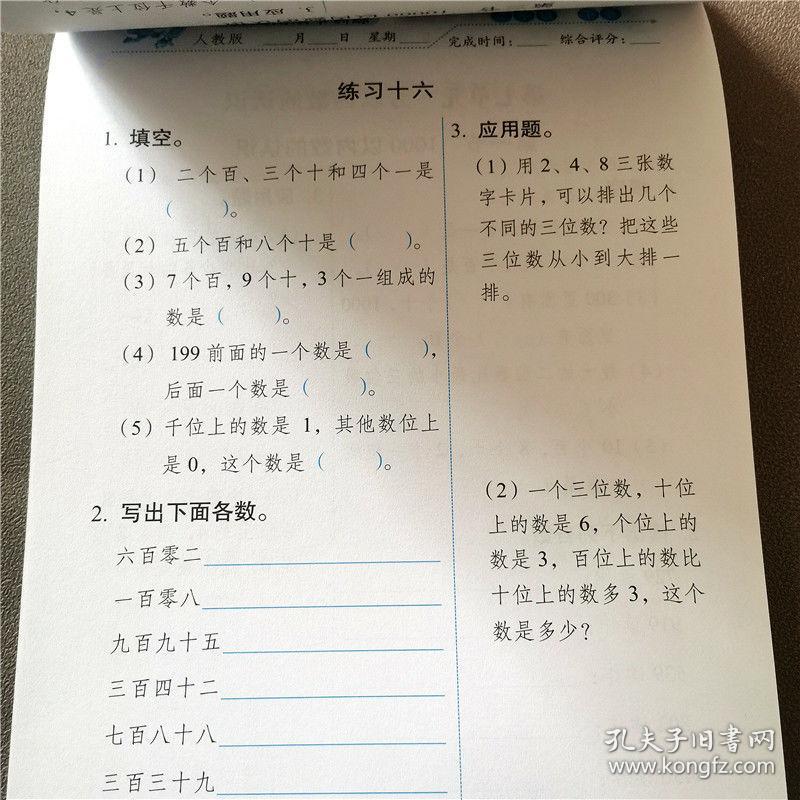 个数千位上是4，
3. 应用题。
人教版 ___月___日 星期___ 完成时间：___ 综合评分：___
练习十六
1. 填空。
（1） 二个百、三个十和四个一是
（　　）。
（2） 五个百和八个十是（　　）。
（3）7个百，9个十，3个一组成的
数是（　　）。
（4）199前面的一个数是（　　），
后面一个数是（　　）。
（5）千位上的数是 1，其他数位上
是0，这个数是（　　）。
2. 写出下面各数。
六百零二
一百零八
九百九十五
三百四十二
七百八十八
三百三十九
3. 应用题。
（1）用 2、4、8 三张数
字卡片，可以排出几个
不同的三位数？把这些
三位数从小到大排一
排。
（2）一个三位数，十位
上的数是6，个位上的
数是3，百位上的数比
十位上的数多3，这个
数是多少？
孔夫子旧书网
www.kongfz.com